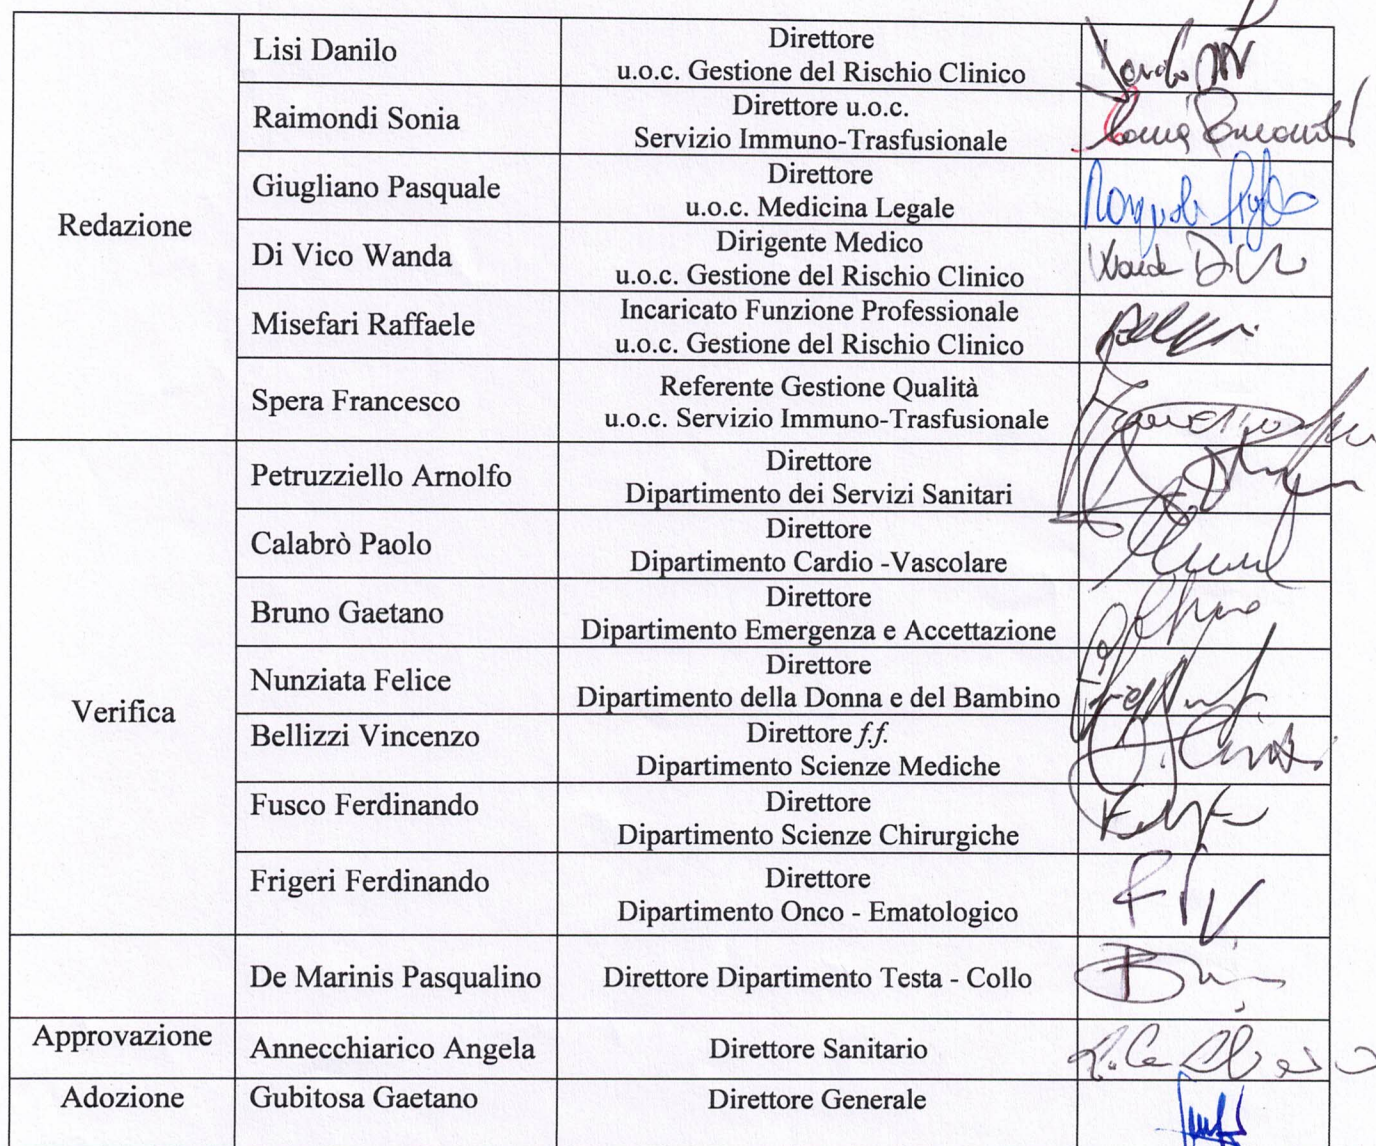 Redazione
Lisi Danilo
Direttore
u.o.c. Gestione del Rischio Clinico
Raimondi Sonia
Direttore u.o.c.
Servizio Immuno-Trasfusionale
Giugliano Pasquale
Direttore
u.o.c. Medicina Legale
Di Vico Wanda
Dirigente Medico
u.o.c. Gestione del Rischio Clinico
Misefari Raffaele
Incaricato Funzione Professionale
u.o.c. Gestione del Rischio Clinico
Spera Francesco
Referente Gestione Qualità
u.o.c. Servizio Immuno-Trasfusionale
Verifica
Petruzziello Arnolfo
Direttore
Dipartimento dei Servizi Sanitari
Calabrò Paolo
Direttore
Dipartimento Cardio -Vascolare
Bruno Gaetano
Direttore
Dipartimento Emergenza e Accettazione
Nunziata Felice
Direttore
Dipartimento della Donna e del Bambino
Bellizzi Vincenzo
Direttore f.f.
Dipartimento Scienze Mediche
Fusco Ferdinando
Direttore
Dipartimento Scienze Chirurgiche
Frigeri Ferdinando
Direttore
Dipartimento Onco - Ematologico
De Marinis Pasqualino
Direttore Dipartimento Testa - Collo
Approvazione
Annecchiarico Angela
Direttore Sanitario
Adozione
Gubitosa Gaetano
Direttore Generale